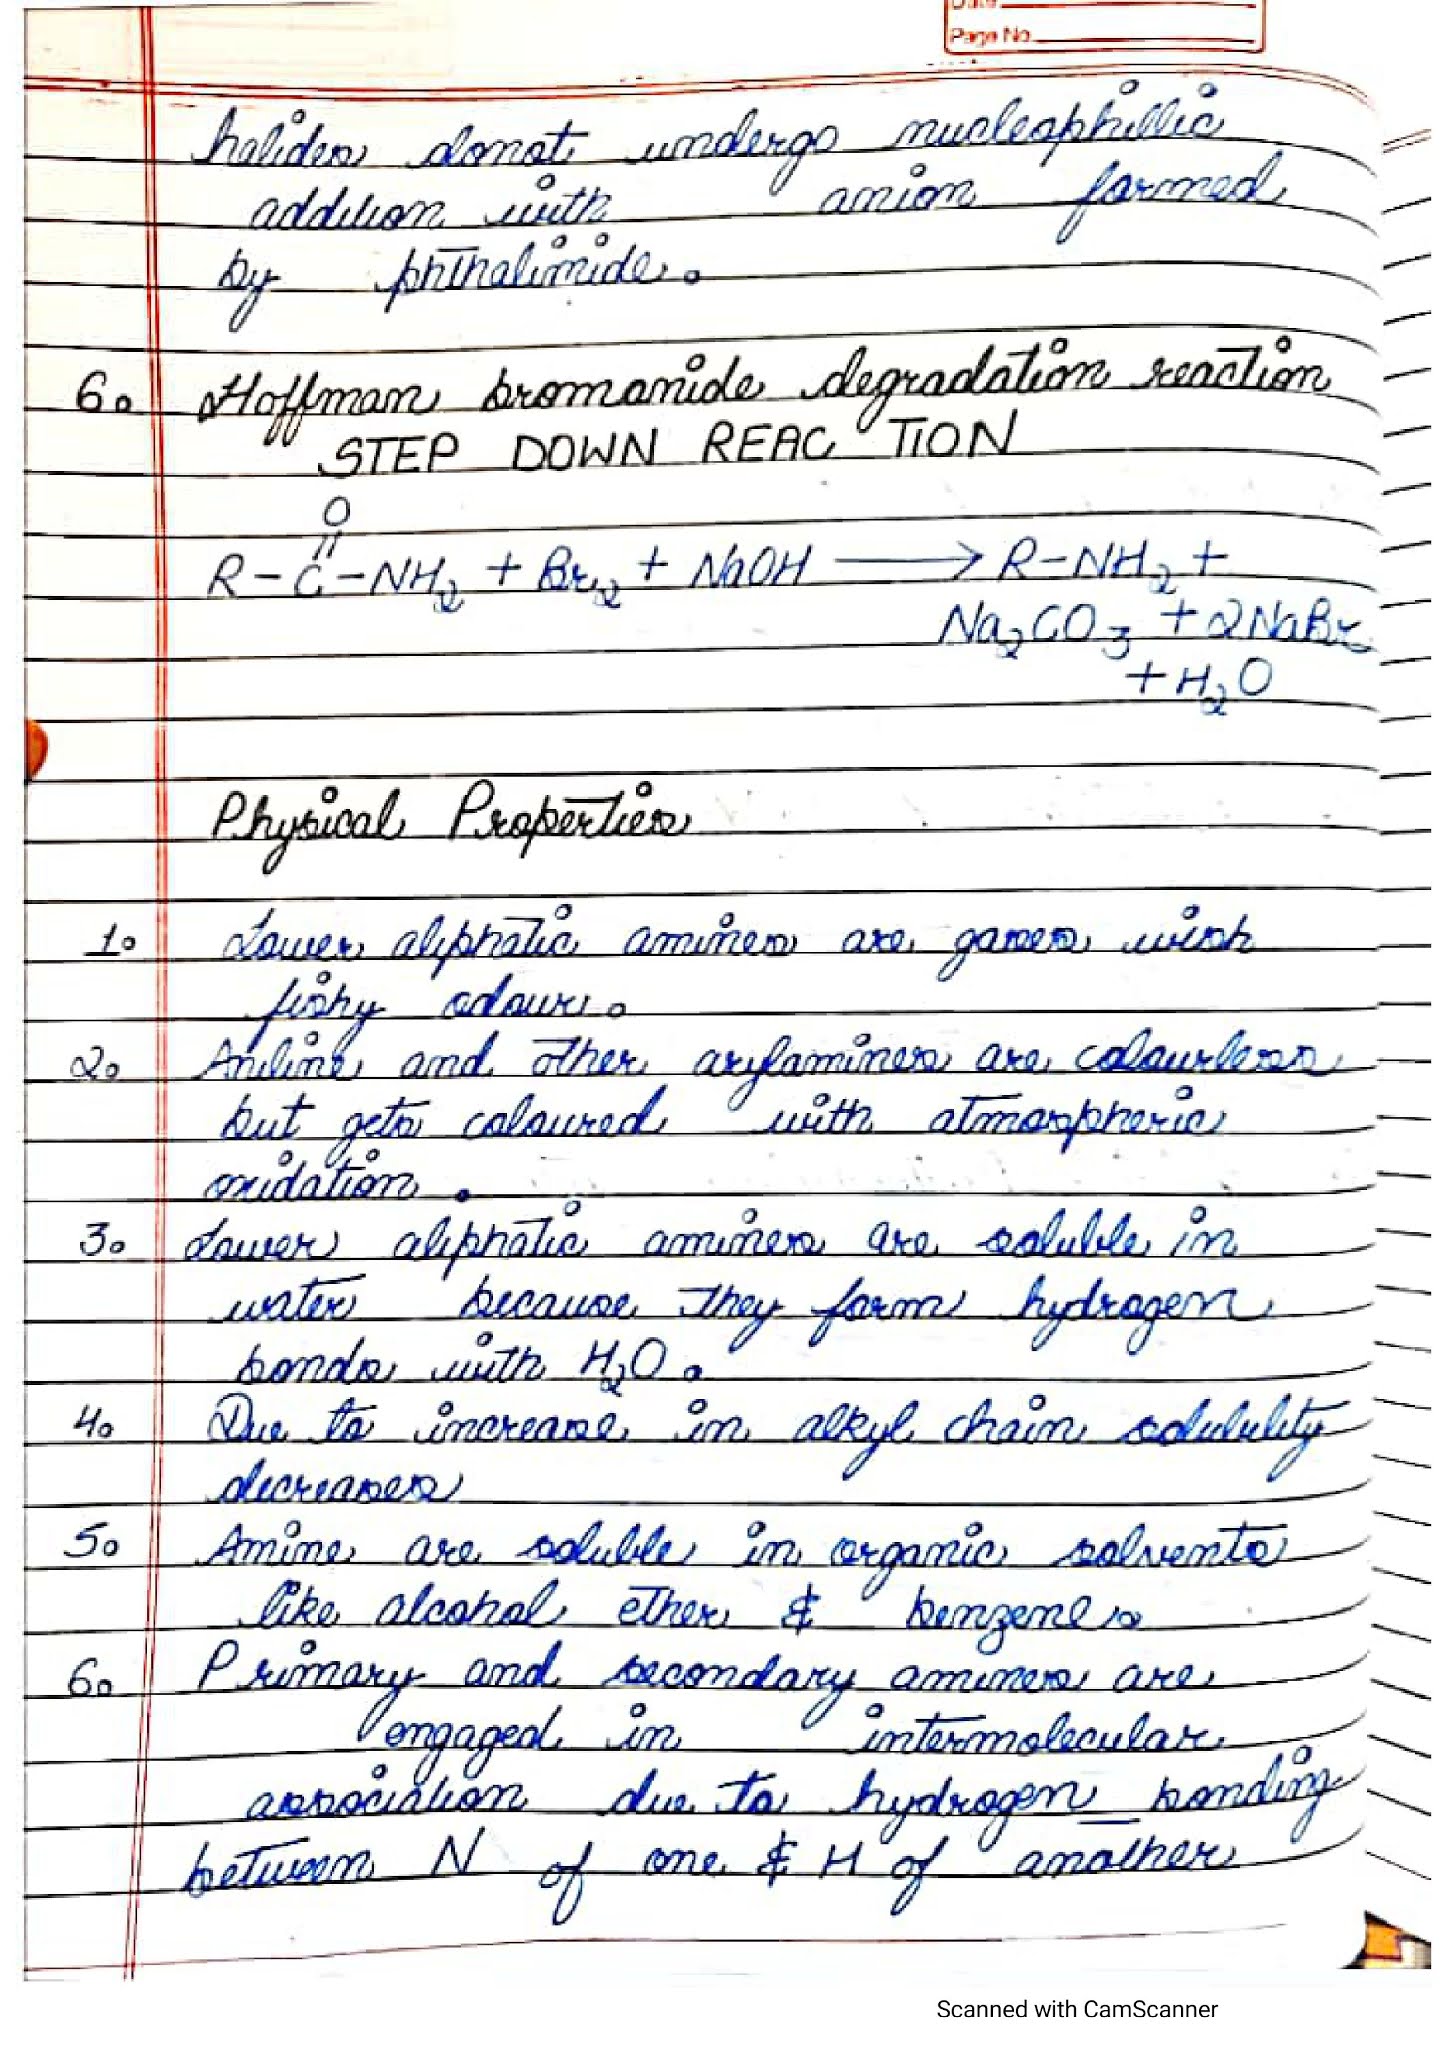 Date
Page No.
halides donot undergo nucleophillic
addition with anion formed
by phthalimide.
6. Hoffman bromamide degradation reaction
STEP DOWN REACTION
O
||
R-C-NH2 + Br2 + NaOH → R-NH2 +
Na2CO3 + 2NaBr
+ H2O
Physical Properties
1. Lower aliphatic amines are gases with
fishy odour.
2. Aniline and other arylamines are colourless
but gets coloured with atmospheric
oxidation.
3. Lower aliphatic amines are soluble in
water because they form hydrogen
bonds with H2O.
4. Due to increase in alkyl chain solubility
decreases
5. Amine are soluble in organic solvents
like alcohol ether & benzene.
6. Primary and secondary amines are
engaged in intermolecular
association due to hydrogen bonding
between N of one & H of another
Scanned with CamScanner